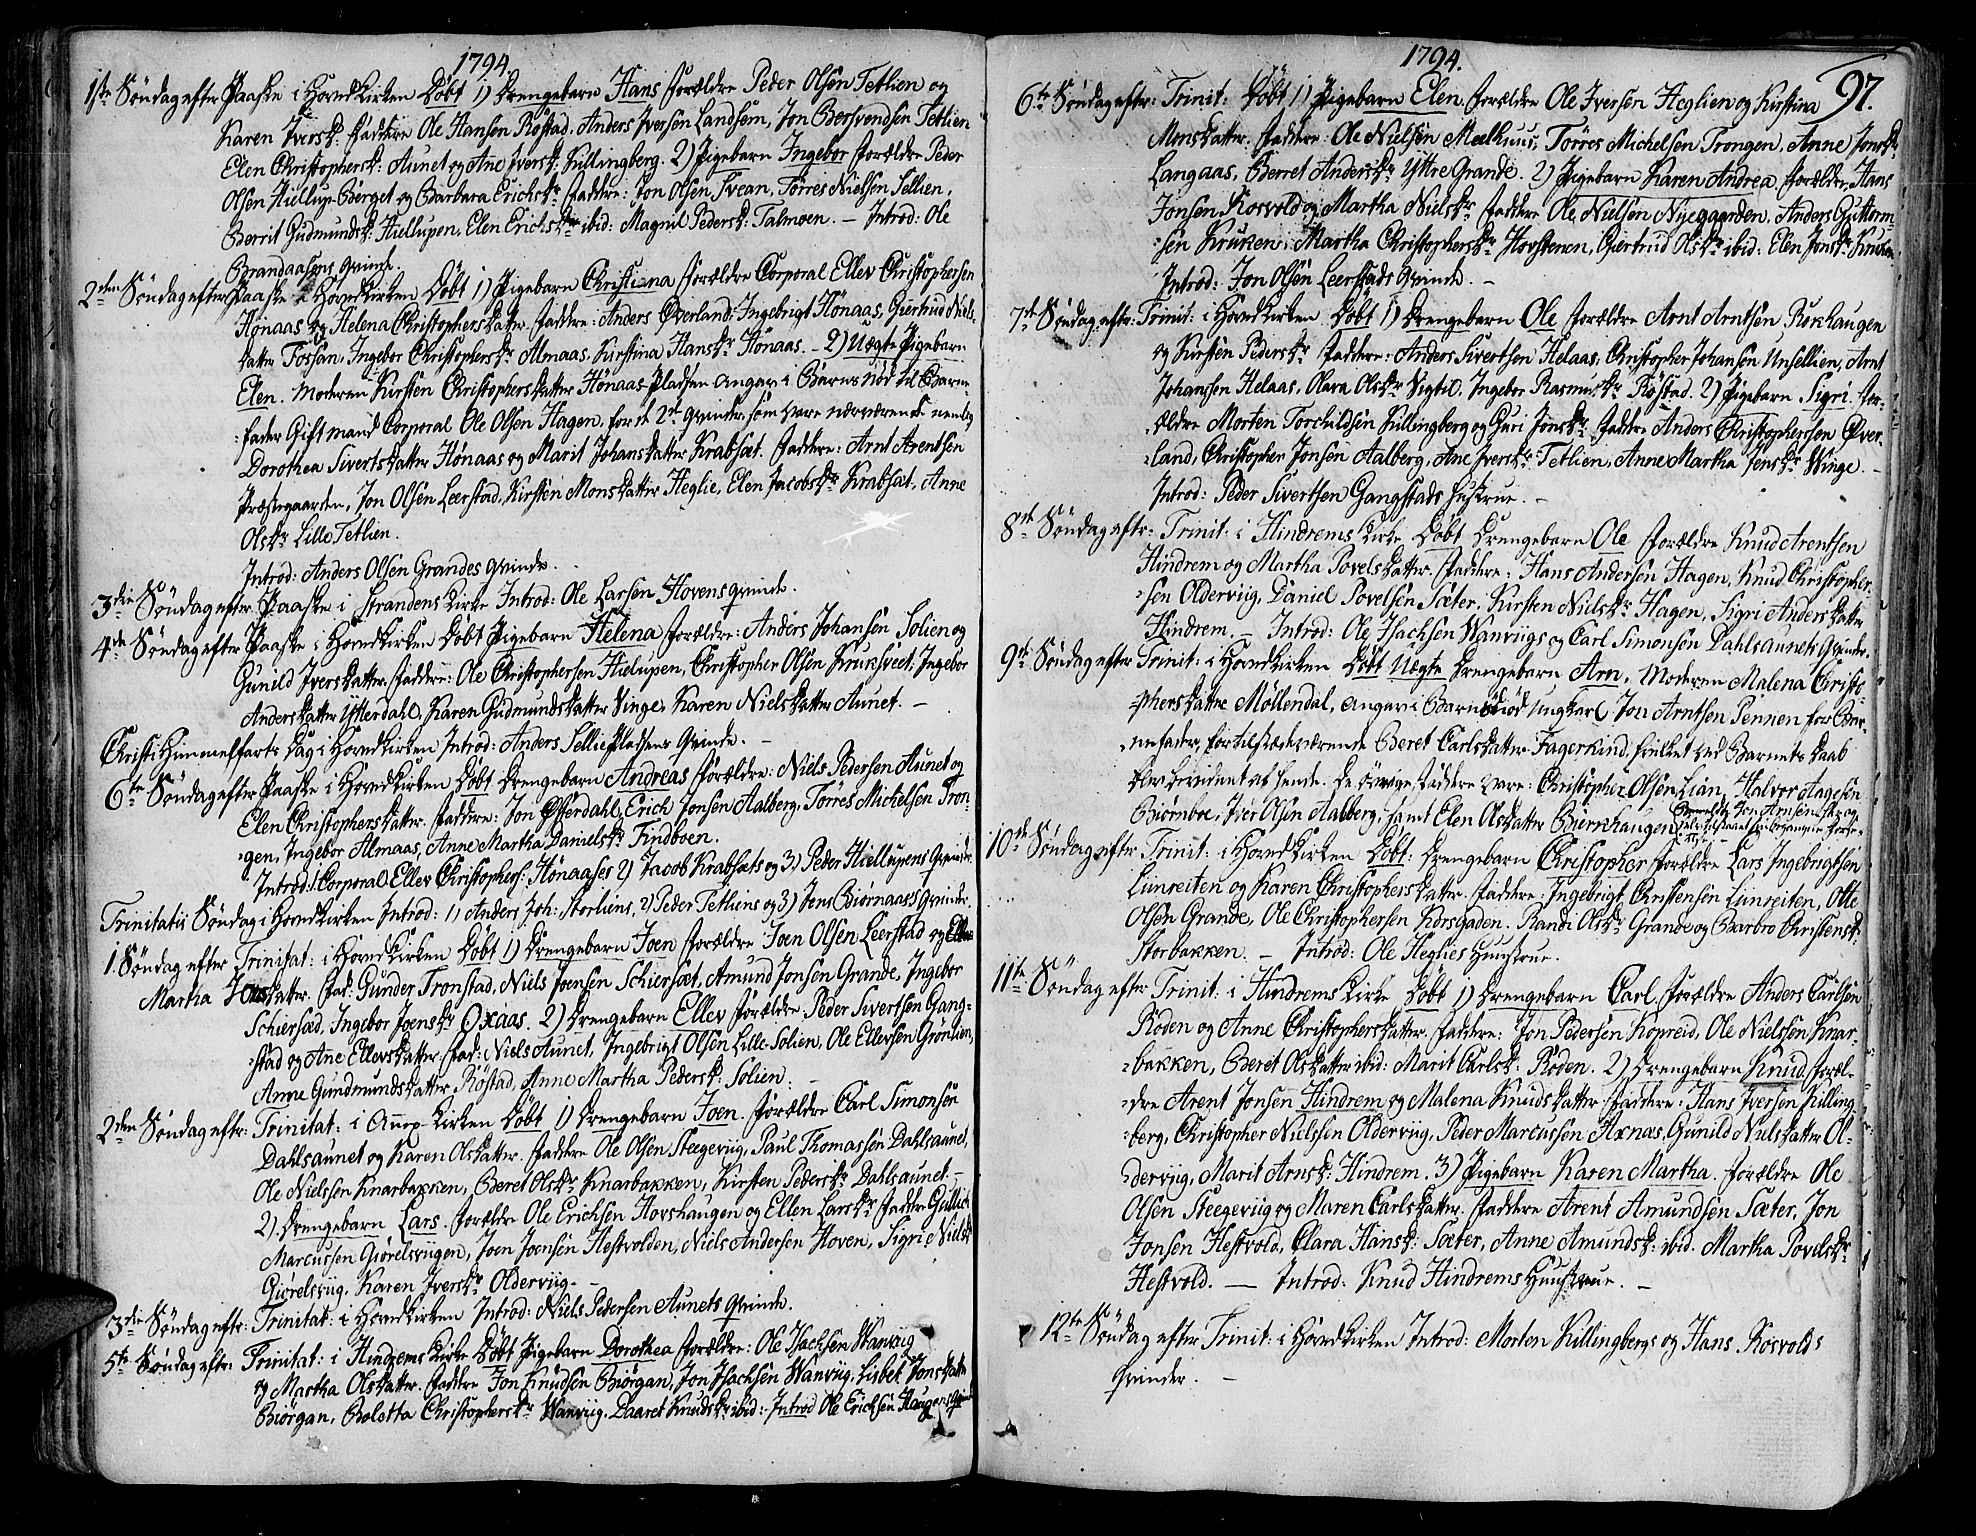 1794.
1ste Søndag efter Paaske i Hovedkirken Døbt 1) Drengebarn Hans Forældre Peder Olsen Tetlien og
Karen Iversk: Faddere Ole Hansen Røstad, Anders Iversen Landsem, Jon Bersvendsen Tetlien
Elen Christophersk: Aunet og Ane Iversk: Killingberg. 2) Pigebarn Ingebor Forældre Peder
Olsen Hiellup-Børget og Barbara Erichskr Faddere: Jon Olsen Svean, Tørres Nielsen Sellien,
Berrit Gudmundsk: Hiellupen, Elen Erichskr ibid: Magnil Pedersk: Talmoen. – Introd: Ole
Brandaasens Qvinde
2den Søndag efter Paaske i Hovedkirken Døbt 1) Pigebarn Christiana Forældre Corporal Ellev Christophersen
Hønaas og Helena Christophersdatter. Faddere: Anders Øverland, Ingebrigt Hönaas, Giertrud Niels-
datter Fossan, Ingebor Christopherskr Almaas, Kirstina Hanskr Hönaas. – 2) Uægte Pigebarn
Elen. Moderen Kirsten Christophersdatter Hønaas-Pladsen angav i Barns nød til Barne
fader Gift mand Corporal Ole Olsen Hagen, for de 2de Qvinder, som vare nærværende nemlig
Dorothea Sivertsdatter Hønaas og Marit Johansdatter Krabsæt. Faddere: Arnt Arentsen
Præstegaarden, Jon Olsen Leerstad, Kirsten Monsdatter Heglie, Elen Jacobskr Krabsæt, Anne
Olskr Lille Tetlien.
Introd: Anders Olsen Grandes Qvinde.
3die Søndag efter Paaske i Strandens Kirke Introd: Ole Larsen Hovens Qvinde.
4de Søndag efter Paaske i Hovedkirken Døbt Pigebarn Helena Forældre: Anders Johansen Solien og
Gunild Iversdatter. Faddere: Ole Christophersen Hielupen, Christopher Olsen Kruksveet, Ingebor
Andersdatter Ytterdahl, Karen Gudmundsdatter Vinge, Karen Nielsdatter Aunet. –
Christi Himmelfarts Dag i Hovedkirken Introd: Anders Selliepladsens Qvinde. –
6te Søndag efter Paaske i Hovedkirken Døbt Drengebarn Andreas Forældre: Niels Pedersen Aunet og
Elen Christophersdatter. Faddere: Jon Ytterdahl, Erich Jonsen Aalberg, Törres Michelsen Tron-
gen, Ingebor Almaas, Anne Martha Danielskr Findboen.
Introd: 1 Corporal Ellev Christophers: Hönaases 2) Jacob Krabsæts og 3) Peder Hiellupens Qvinder
Trinitatis Søndag i Hovedkirken Introd: 1) Anders Joh: Storliens, 2) Peder Tetliens og 3) Jens Biørnaas's Qvinder.
1. Søndag efter Trinitat: i Hovedkirken Døbt 1) Drengebarn Joen Forældre Joen Olsen Leerstad og
Martha datter. Fad: Gunder Tronstad, Niels Joensen Schiersæt, Amund Jonsen Grande, Ingebor
Schiersæd, Ingebor Joenskr Oxaas. 2) Drengebarn Ellev Forældre Peder Sivertsen Gang-
stad og Ane Ellevsdatter. Fad: Niels Aunet, Ingebrigt Olsen Lille-Solien, Ole Ellevsen Grønlien,
Anne Gundmundsdatter Röstad, Anne Martha Pedersk: Solien. –
2den Søndag eftr: Trinitat: i Annex-Kirken Døbt 1) Drengebarn Joen. Forældre Carl Simonsen
Dahlsaunet og Karen Olsdatter. Faddere Ole Olsen Steegeviig, Paul Thomassen Dahlsaunet,
Ole Nielssen Knarbakken, Beret Olskr Knarbakken, Kirsten Pederskr Dahlsaunet. –
2) Drengebarn Lars. Forældre Ole Erichsen Hovshaugen og Ellen Larskr Faddere Gullich
Marcussen Giørelsviigen, Joen Joensen Hestvolden, Niels Andersen Hoven, Sigri Nielsk
Giørelsviig, Karen Iverskr Olderviig. –
3die Søndag eftr: Trinitat: i Hovedkirken Introd: Niels Pedersen Aunets Qvinde.
5te Søndag eftr: Trinitat: i Hindrems Kirke Døbt Pigebarn Dorothea Forældre: Ole Isachsen Wanviig
og Martha Olsdatter. Faddere Jon Knudsen Biørgan, Jon Isachsen Wanviig, Lisbet Jonsdatter
Biörgan, Boletta Christopherskr Wanviig, Daaret Knudskr ibid: Introd Ole Erichsen Haugens Qvinde
1794.
97.
6te Søndag eftr: Trinit: Døbt 1) Pigebarn Elen. Forældre Ole Iversen Heglien og Kirstina
Monsdatter. Faddere: Ole Nielsen Meelhuus, Törres Michelsen Trongen, Anne Jonskr
Langaas, Berret Anderskr Yttre Grande. 2) Pigebarn Karen Andrea. Forældre Hans
Jonsen Kosvold og Martha Nielskr Faddere Ole Nielsen Nyegaarden, Anders Guttorm-
sen Kruken, Martha Christopherskr Hovstenen, Giertrud Olskr ibid: Elen Jonskr
Introd: Jon Olsen Leerstads Qvinde. –
7de Søndag eftr: Trinit: i Hovedkirken Døbt 1) Drengebarn Ole Forældre Arnt Arntsen Rokhaugen
og Kirsten Pederskr Faddere: Anders Sivertsen Helaas, Christopher Johansen Unsellien, Arnt
Johansen Helaas, Olava Olskr Vigtil, Ingebor Rasmuskr Röstad. 2) Pigebarn Sigri. For-
ældre Morten Torchildsen Killingberg og Guri Jonskr Faddere Anders Christopherssen Øver-
land, Christopher Jonsen Aalberg, Ane Iverskr Tetlien, Anne Martha Jenskr Winge. –
Introd: Peder Sivertsen Gangstads Hustrue. –
8de Søndag eftr: Trinit: i Hindrems Kirke Døbt Drengebarn Ole Forældre Knud Arentsen
Hindrem og Martha Povelsdatter. Faddere: Hans Andersen Hagen, Knud Christopher-
sen Olderviig, Daniel Povelsen Sæter, Kirsten Nielskr Hagen, Sigri Andersdatter
Hindrem. – Introd: Ole Isachsen Wanviigs og Carl Simonsen Dahlsaunets Qvinder.
9de Søndag efter Trinit: i Hovedkirken Døbt Uægte Drengebarn Arn. Moderen Malena Christo-
phersdatter Möllendal, angav i Barnsnöd ungkarl Jon Arntsen Pennen for Bar-
nefader, for tilstedeværende Beret Carlsdatter Fagerlind, hvilket ved Barnets Daab
blev bevidnet at hende. De övrige Faddere vare: Christopher Olsen Lian, Halvor Aagesen
Biørnboe, Iver Olsen Aalberg, samt Elen Olsdatter Bierkhaugen.
10de Søndag efter Trinit: i Hovedkirken Døbt: Drengebarn Christopher Forældre Lars Ingebrigtsen
Liinreiten og Karen Christophersdatter. Faddere: Ingebrigt Christensen Liinreiten, Otte
Olsen Grande, Ole Christophersen Korsgaden, Randi Olskr Grande og Barbro Christensk:
Storbakken. – Introd: Ole Heglies Huustrue.
11te Søndag efter Trinit: i Hindrems Kirke Døbt 1) Drengebarn Carl. Forældre Anders Carlsen
Röden og Anne Christophersdatter. Faddere: Jon Pedersen Kopreid, Ole Nielssen Knar-
bakken, Berit Olsdatter ibid: Marit Carlsk: Röden. 2) Drengebarn Knud Foræl-
dre Arent Jonsen Hindrem og Malena Knudsdatter. Faddere: Hans Iversen Killing-
berg, Christopher Nielssen Olderviig, Peder Marcussen Axnæs, Gunild Nielsdatter Ol-
derviig, Marit Arnsk: Hindrem. 3) Pigebarn Karen Martha. Forældre Ole
Olsen Steegeviig og Maren Carlsdatter. Faddere Arent Amundsen Sæter, Jon
Jonsen Hestvold, Clara Hansk: Sæter, Anne Amundsk: ibid. Martha Povelskr
Hestvold. – Introd: Knud Hindrems Huustrue. –
12te Søndag efter Trinit: i Hovedkirken Introd: Morten Killingbergs og Hans Kosvolds
Qvinder. –